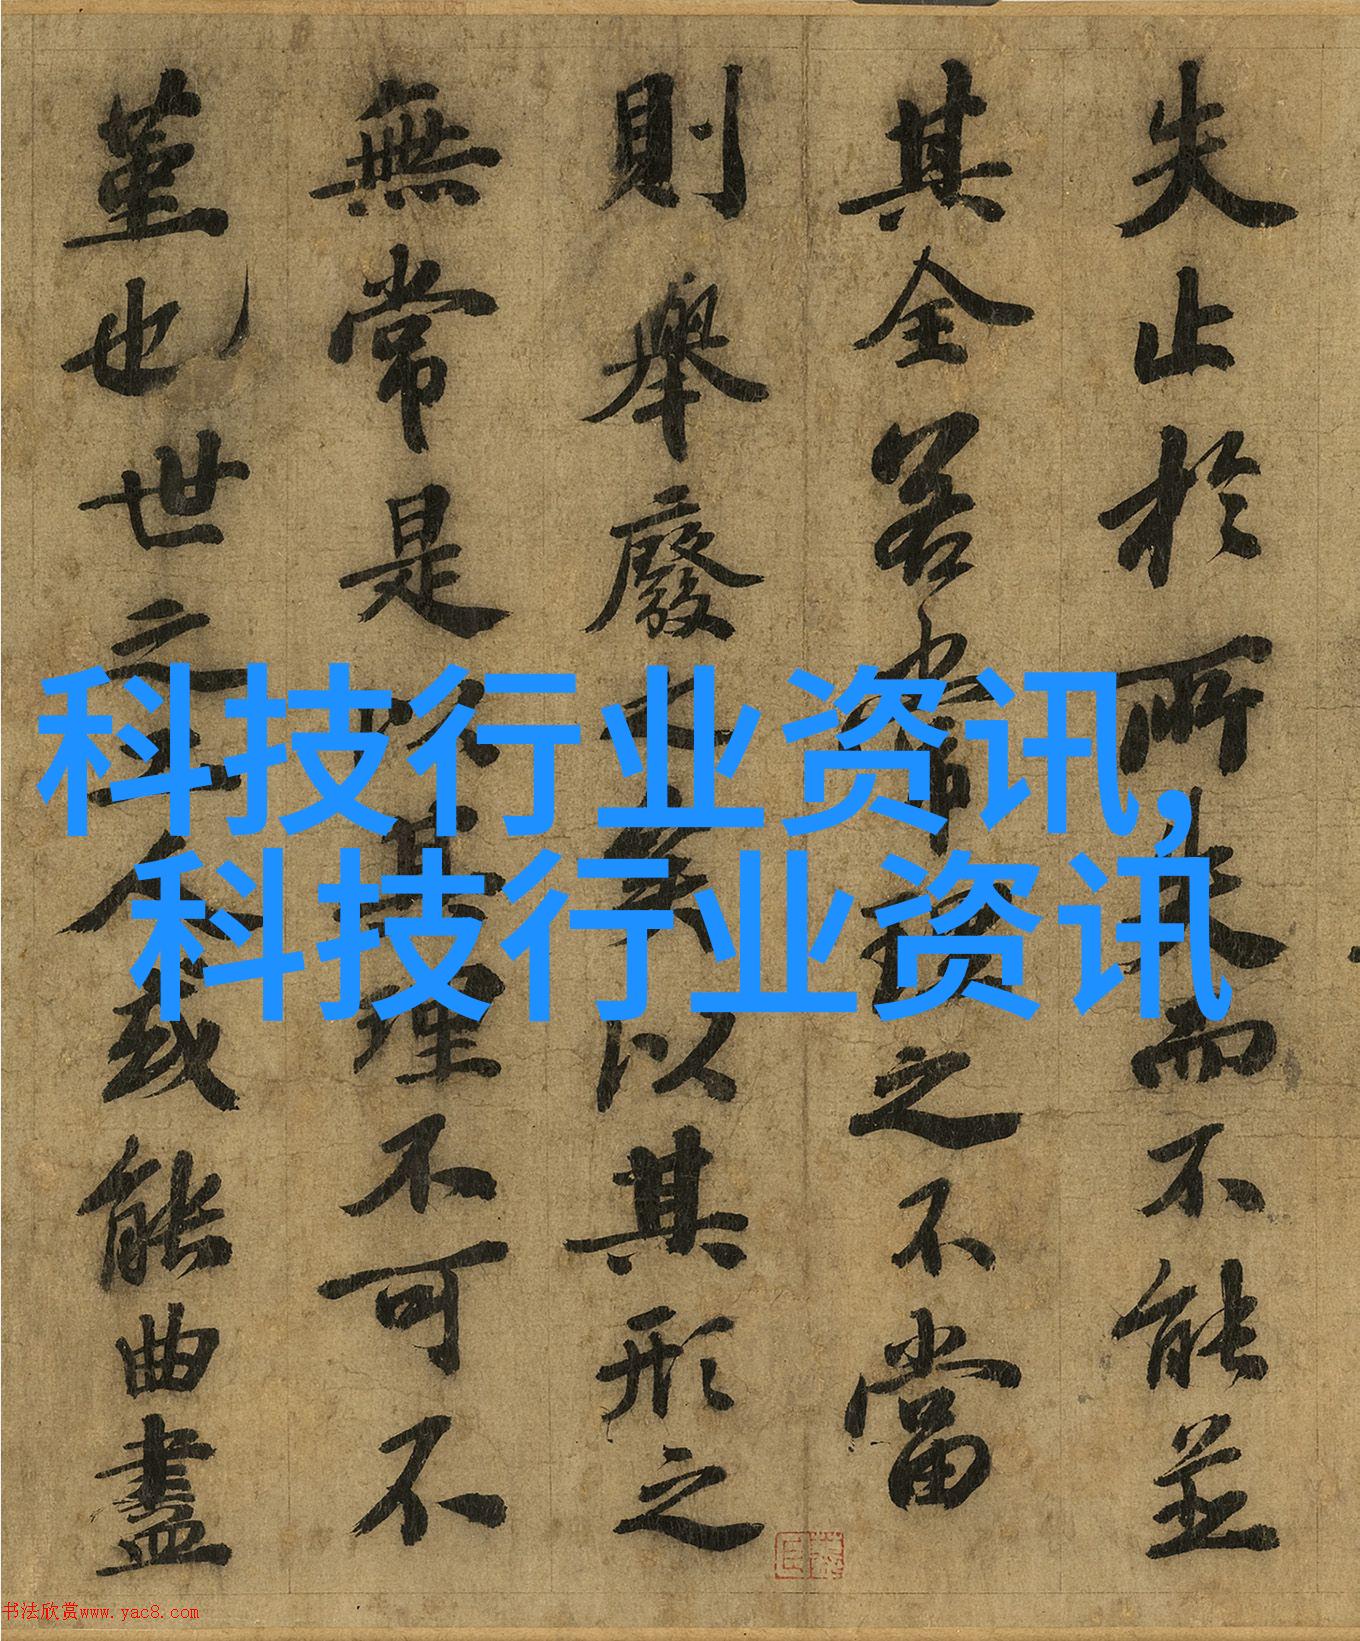 失止於所失而不能並
其全若常理之不當
則舉廢之矣以其形之
無常是以其理不可不
堇也世之工人或能曲盡
科技行业资讯,
科技行业资讯
书法欣赏www.yac8.com